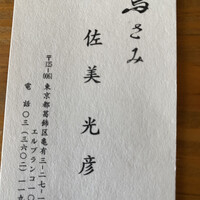 さみ
佐美光彦
〒125-0061
東京都葛飾区亀有三-二七-
エルブランコ一〇
電話〇三(三六〇二)一一九